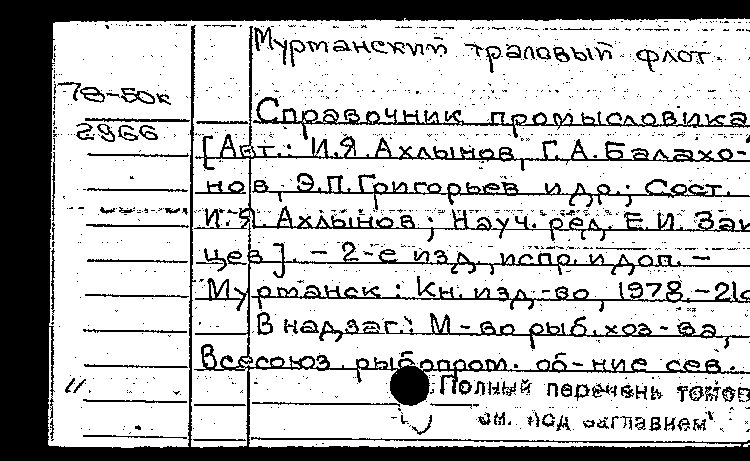 Мурманский траловый флот.
78-50к
2966
Справочник промысловика
[Авт.: И.Я. Ахлынов, Г.А. Балахо-
нов, Э.П. Григорьев и др.; Сост.
И.Я. Ахлынов; Науч. ред. Е.И. Зай
цев]. - 2-е изд., испр. и доп. -
Мурманск : Кн. изд-во, 1978.-21с
В надзаг.: М-во рыб. хоз-ва,
Всесоюз. рыбопром. об-ние сев.
Полный перечень томов
см. под заглавием